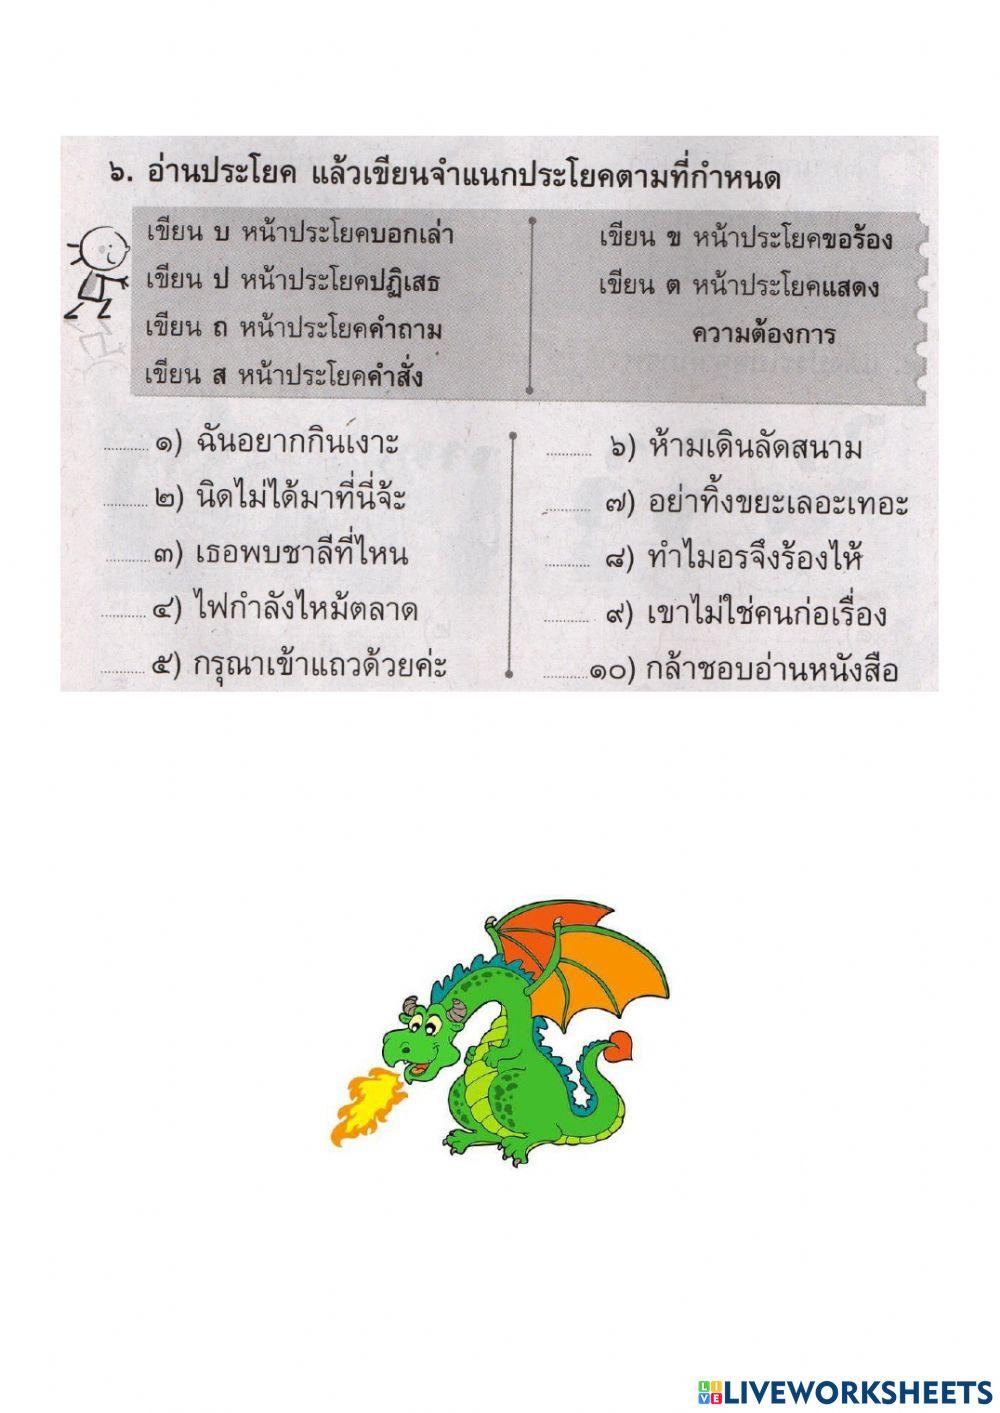 ๖. อ่านประโยค แล้วเขียนจำแนกประโยคตามที่กำหนด
เขียน บ หน้าประโยคบอกเล่า
เขียน ป หน้าประโยคปฏิเสธ
เขียน ถ หน้าประโยคคำถาม
เขียน ส หน้าประโยคคำสั่ง
เขียน ข หน้าประโยคขอร้อง
เขียน ต หน้าประโยคแสดง
ความต้องการ
.......... ๑) ฉันอยากกินเงาะ
.......... ๒) นิดไม่ได้มาที่นี่จ้ะ
.......... ๓) เธอพบชาลีที่ไหน
.......... ๔) ไฟกำลังไหม้ตลาด
.......... ๕) กรุณาเข้าแถวด้วยค่ะ
.......... ๖) ห้ามเดินลัดสนาม
.......... ๗) อย่าทิ้งขยะเลอะเทอะ
.......... ๘) ทำไมอรจึงร้องไห้
.......... ๙) เขาไม่ใช่คนก่อเรื่อง
.......... ๑๐) กล้าชอบอ่านหนังสือ
LIVE LIVEWORKSHEETS